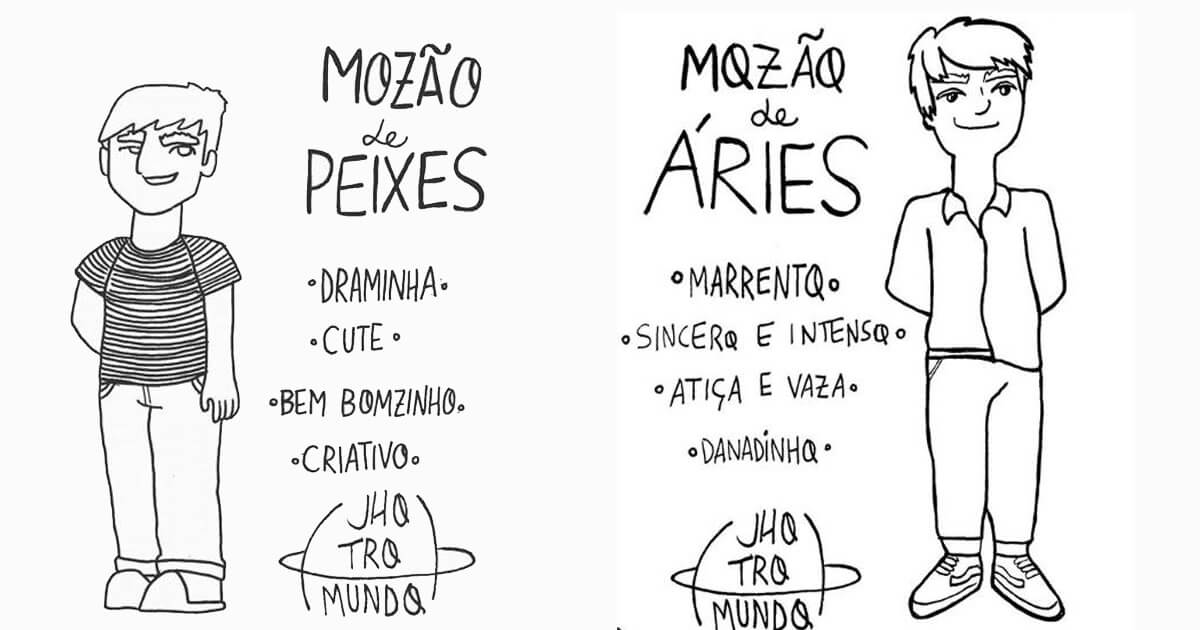 MOZÃO
de
PEIXES
•DRAMINHA•
•CUTE•
•BEM BOMZINHO•
•CRIATIVO•
JHO
TRO
MUNDO
MOZÃO
de
ÁRIES
•MARRENTO•
•SINCERO E INTENSO•
•ATIÇA E VAZA•
•DANADINHO•
JHO
TRO
MUNDO